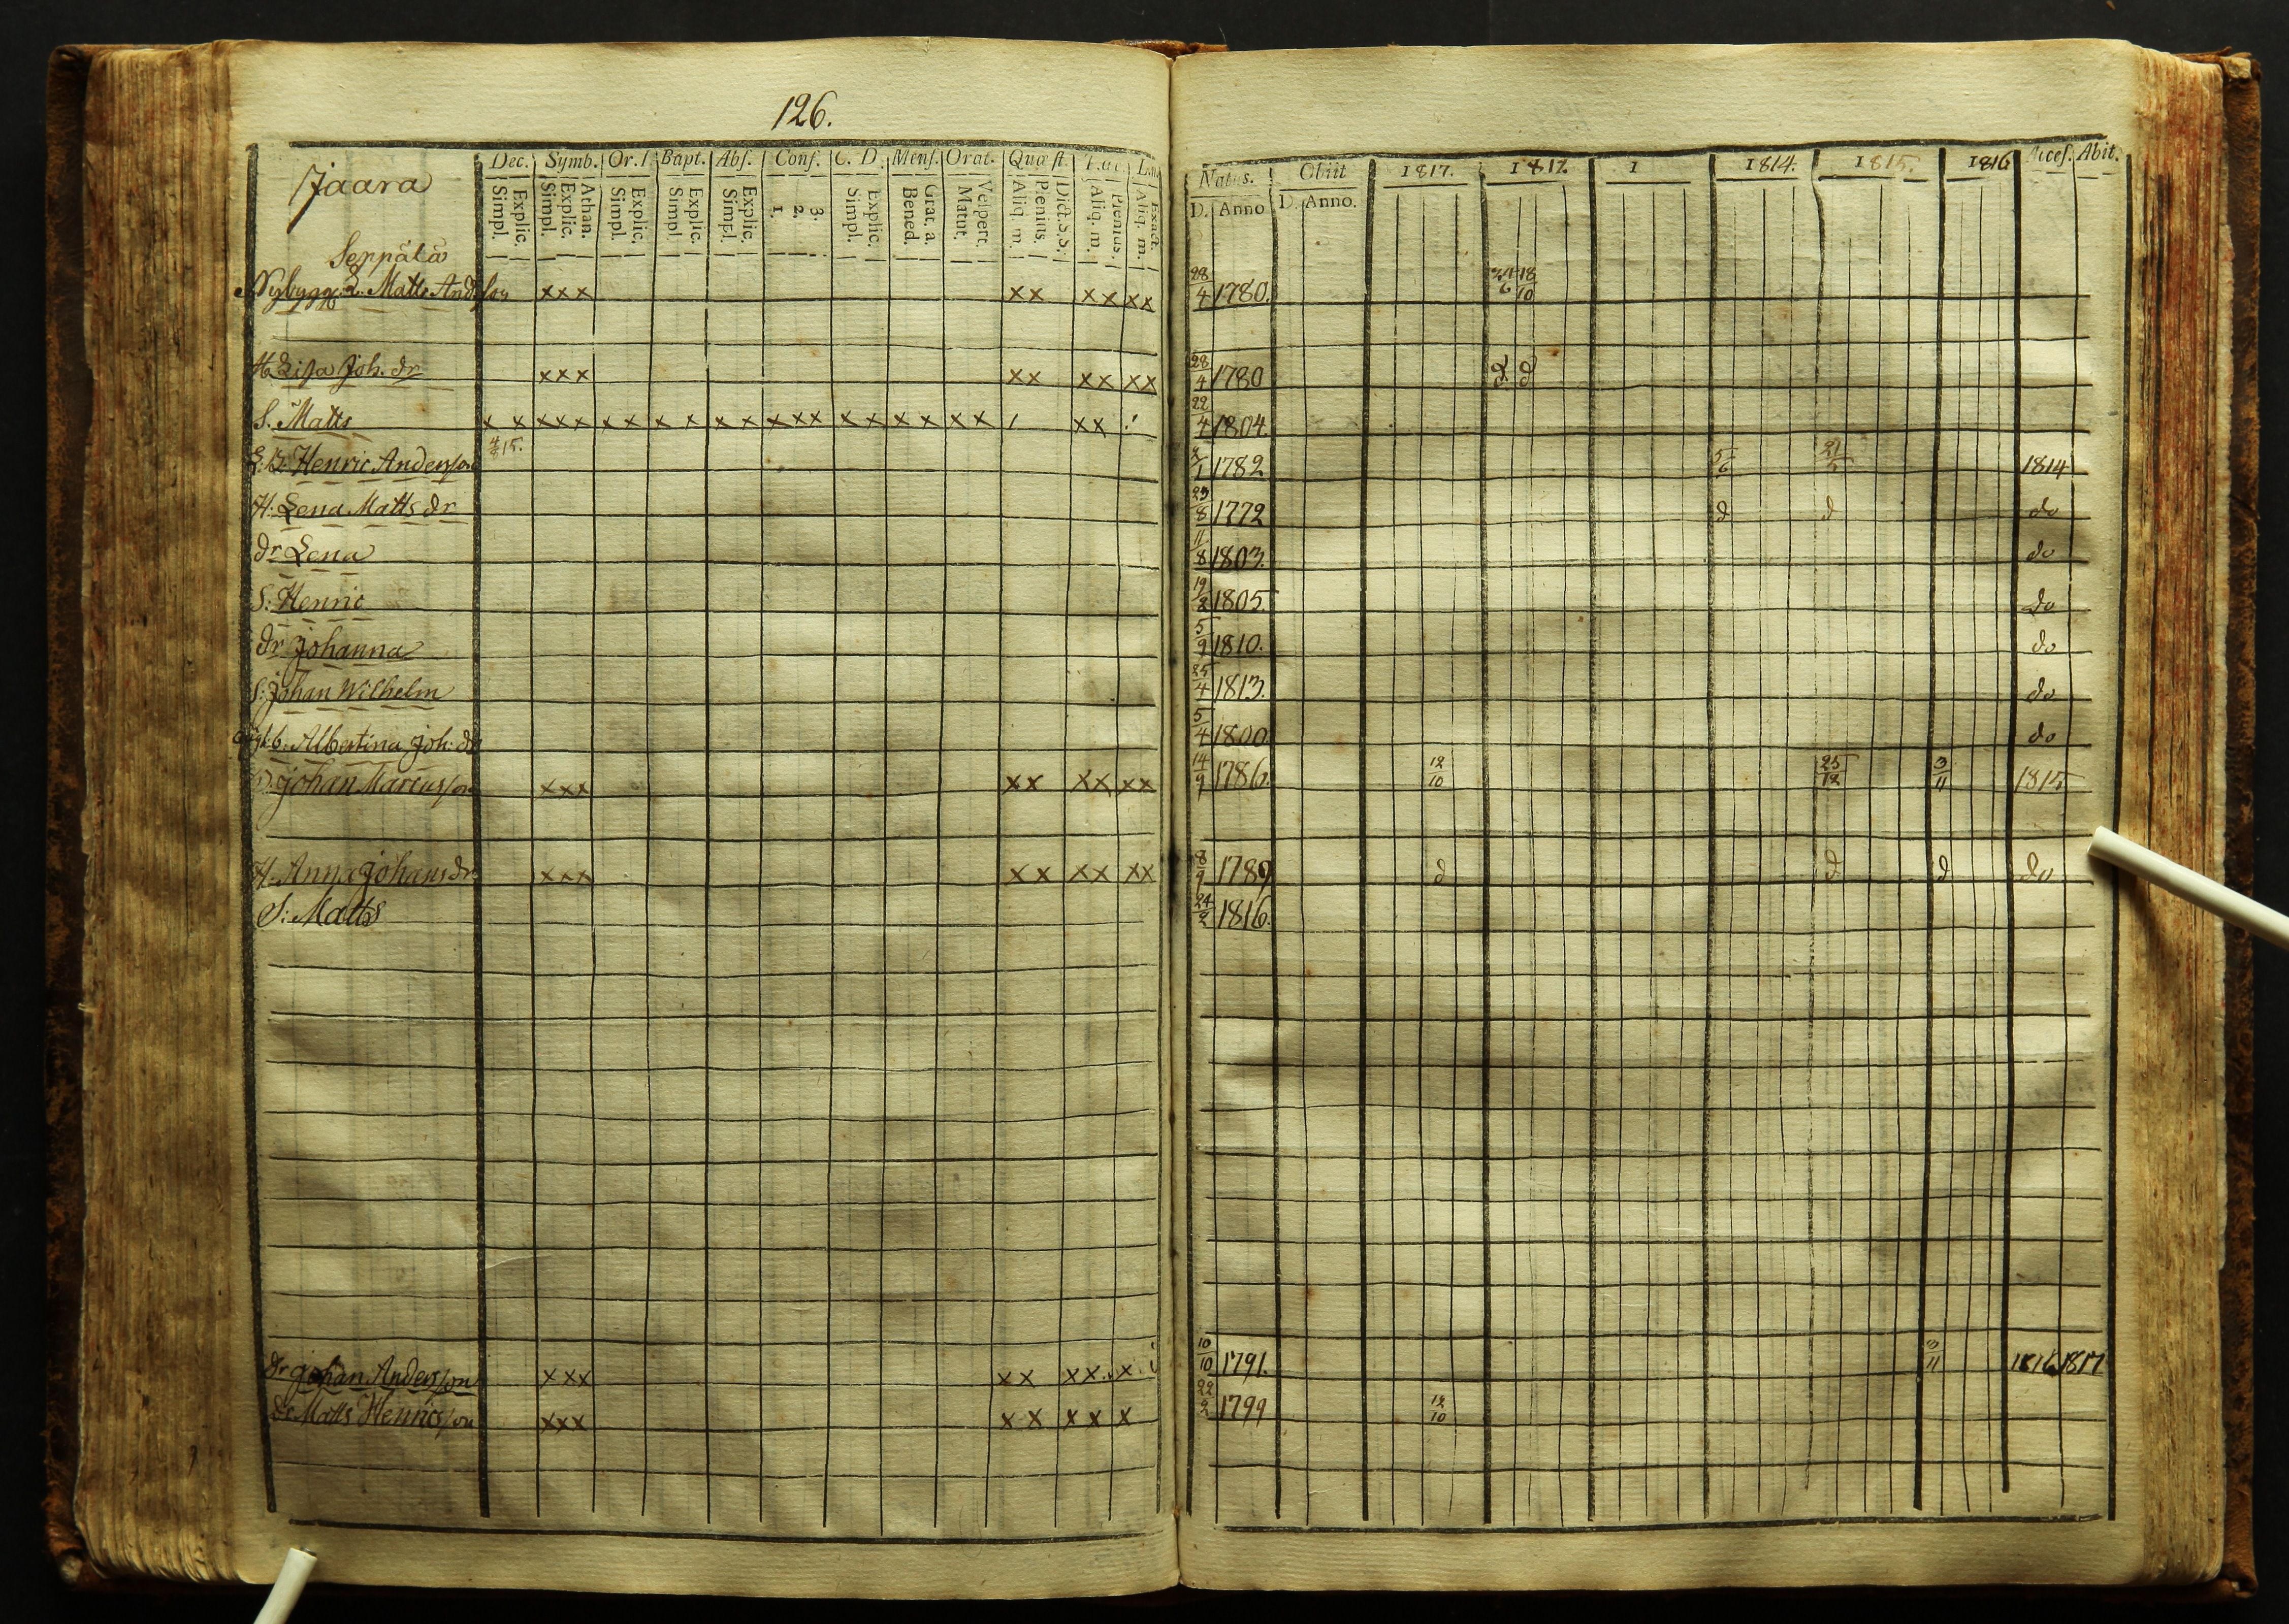 126.
Jaara
Dec. Symb. Or. Bapt. Abs. Conf. C. D. Mens. Orat. Quæst. Luc
Simpl. Explic. Simpl. Explic. Athan. Simpl. Explic. Simpl. Explic. Simpl. Explic. 1. 2. 3. Simpl. Explic. Bened. Grat. a. Matut. Vespert. Aliq. m. Plenius. Dict. S. S. Aliq. m. Plenius. Aliq. m. Exact.
Natus. Obiit 1817. 1812. 1 1814. 1815. 1816 Acces. Abit.
D. Anno D. Anno.
Seppälä
Nybygg. Matts Andersson xxx xx xx xx 28/4 1780. 18/10
H. Lisa Joh. dr xxx xx xx xx 28/4 1780 d d
S. Matts x x xxx x x x x x x xxx x x x x x x / xx ! 22/4 1804.
15.
Henric Andersson 1782 5/6 21/5 1814
H: Lena Matts dr 8 1772 d d do
dr Lena 11/8 1803. do
S: Henric 19/2 1805. do
dr Johanna 5/9 1810. do
S: Johan Wilhelm 25/4 1813. do
Albertina Joh: dr 5/4 1800 do
Johan Marcusson xxx xx xx xx 14/9 1786. 12/10 25/12 3/11 1815
H. Anna Johansdr xxx xx xx xx 8/9 1789 d d d do
S: Matts 24/2 1816.
dr Johan Andersson xxx xx xx x 10/10 1791. 3/11 1816 1817
dr Matts Henricsson xxx xx xx x 22/2 1799 12/10